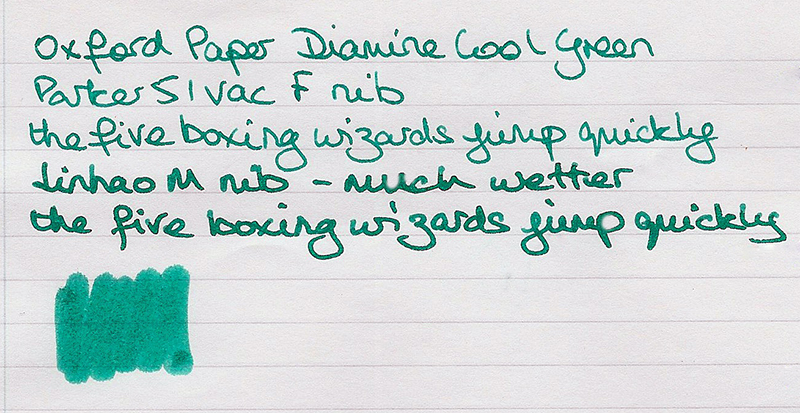 Oxford Paper Diamine Cool Green
Parker 51 vac F nib
the five boxing wizards jump quickly
Jinhao M nib - much wetter
the five boxing wizards jump quickly